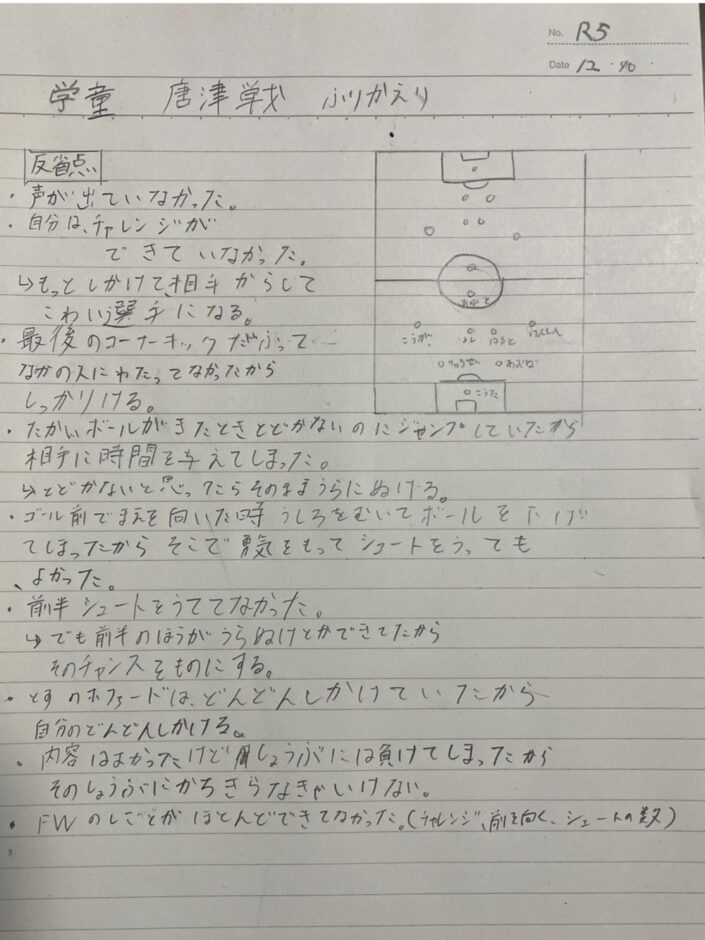 No. R5
Date 12・10・
学童 唐津戦 ふりかえり
反省点
・声が出ていなかった。
・自分は、チャレンジが
できていなかった。
↳もっとしかけて、相手からして
こわい選手になる。
・最後のコーナーキックだふって
なかの人にわたってなかったから
しっかりける。
こうが
はると
りゅうせい
あおば
こうた
・たかいボールがきたときとどかないのにジャンプしていたから
相手に時間を与えてしまった。
↳とどかないと思ったらそのままうらにぬける。
・ゴール前でまえを向いた時うしろをむいてボールを下げ
てしまったから そこで勇気をもってシュートをうっても
よかった。
・前半シュートをうててなかった。
↳でも前半のほうがうらぬけとかできてたから
そのチャンスをものにする。
・とすのホファードは、どんどんしかけていたから
自分のどんどんしかける。
・内容はよかったけどしょうぶには負けてしまったから
そのしょうぶにかちきらなきゃいけない。
・FWのしごとがほとんどできてなかった。(チャレンジ、前を向く、シュートの数)